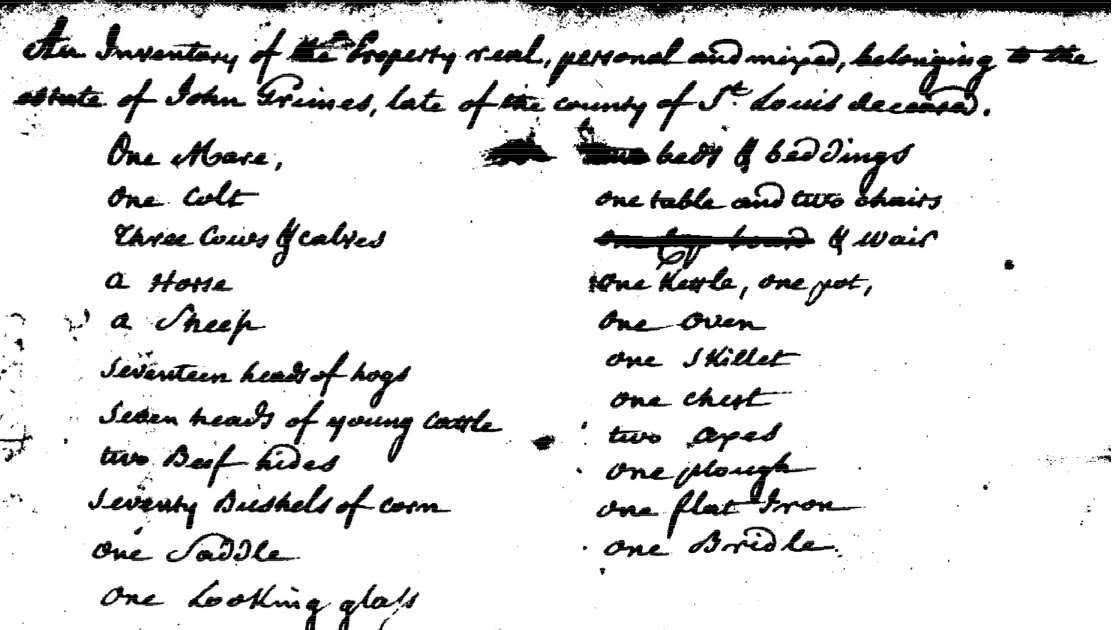 An Inventory of the Property real, personal and mixed, belonging to the
estate of John Grimes, late of the county of St. Louis deceased.
One Mare,
one Colt
Three Cows & calves
a Horse
a Sheep
Seventeen heads of hogs
Seven heads of young Cattle
two Beef hides
Seventy Bushels of corn
one Saddle
one Looking glass
beds & beddings
one table and two chairs
one Cup board & wair
one Kettle, one pot,
one Oven
one Skillet
one chest
two axes
one plough
one flat Iron
one Bridle.